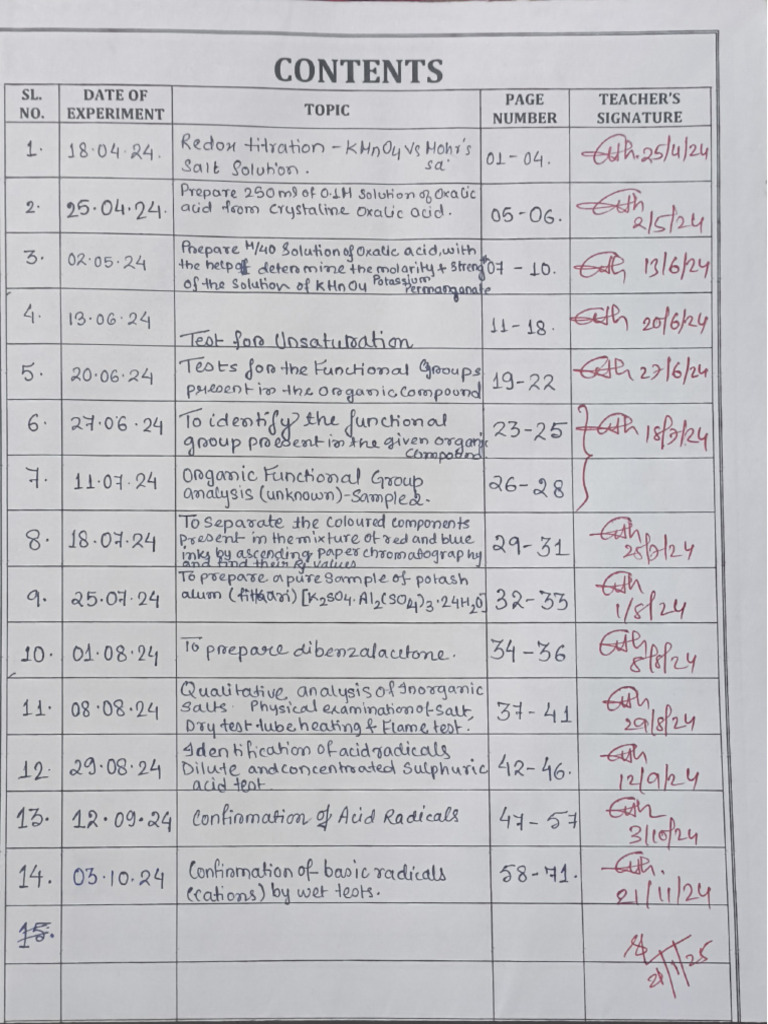 CONTENTS
SL. NO. DATE OF EXPERIMENT TOPIC PAGE NUMBER TEACHER'S SIGNATURE
1. 18.04.24. Redox titration - KMnO4 vs Mohr's 01-04. 25/4/24
Salt Solution.
2. 25.04.24. Prepare 250 ml of 0.1M Solution of Oxalic 05-06. 2/5/24
acid from crystaline Oxalic acid.
3. 02.05.24 Prepare M/40 Solution of Oxalic acid, with 07-10. 13/6/24
the help of determine the molarity + Streng
of the Solution of KMnO4 Potassium
Permanganate
4. 13.06.24 Test for Unsaturation 11-18. 20/6/24
5. 20.06.24 Tests for the Functional Groups 19-22 27/6/24
present in the Organic Compound
6. 27.06.24 To identify the functional 23-25 18/7/24
group present in the given organic
Compound
7. 11.07.24 Organic Functional Group 26-28
analysis (unknown)-Sample 2.
8. 18.07.24 To Separate the Coloured components 29-31 25/7/24
present in the mixture of red and blue
inks by ascending paper chromatography
and find their Rf values
9. 25.07.24 To prepare a pure Sample of potash 32-33 1/8/24
alum (fitkari) [K2SO4.Al2(SO4)3.24H2O]
10. 01.08.24 To prepare dibenzalacetone. 34-36 8/8/24
11. 08.08.24 Qualitative analysis of Inorganic 37-41 29/8/24
Salts. Physical examination of Salt,
Dry test tube heating & Flame test.
12. 29.08.24 Identification of acid radicals 42-46. 12/9/24
Dilute and concentrated Sulphuric
acid test
13. 12.09.24 Confirmation of Acid Radicals 47-57 3/10/24
14. 03.10.24 Confirmation of basic radicals 58-71. 21/11/24
(cations) by wet tests.
15.
21/1/25